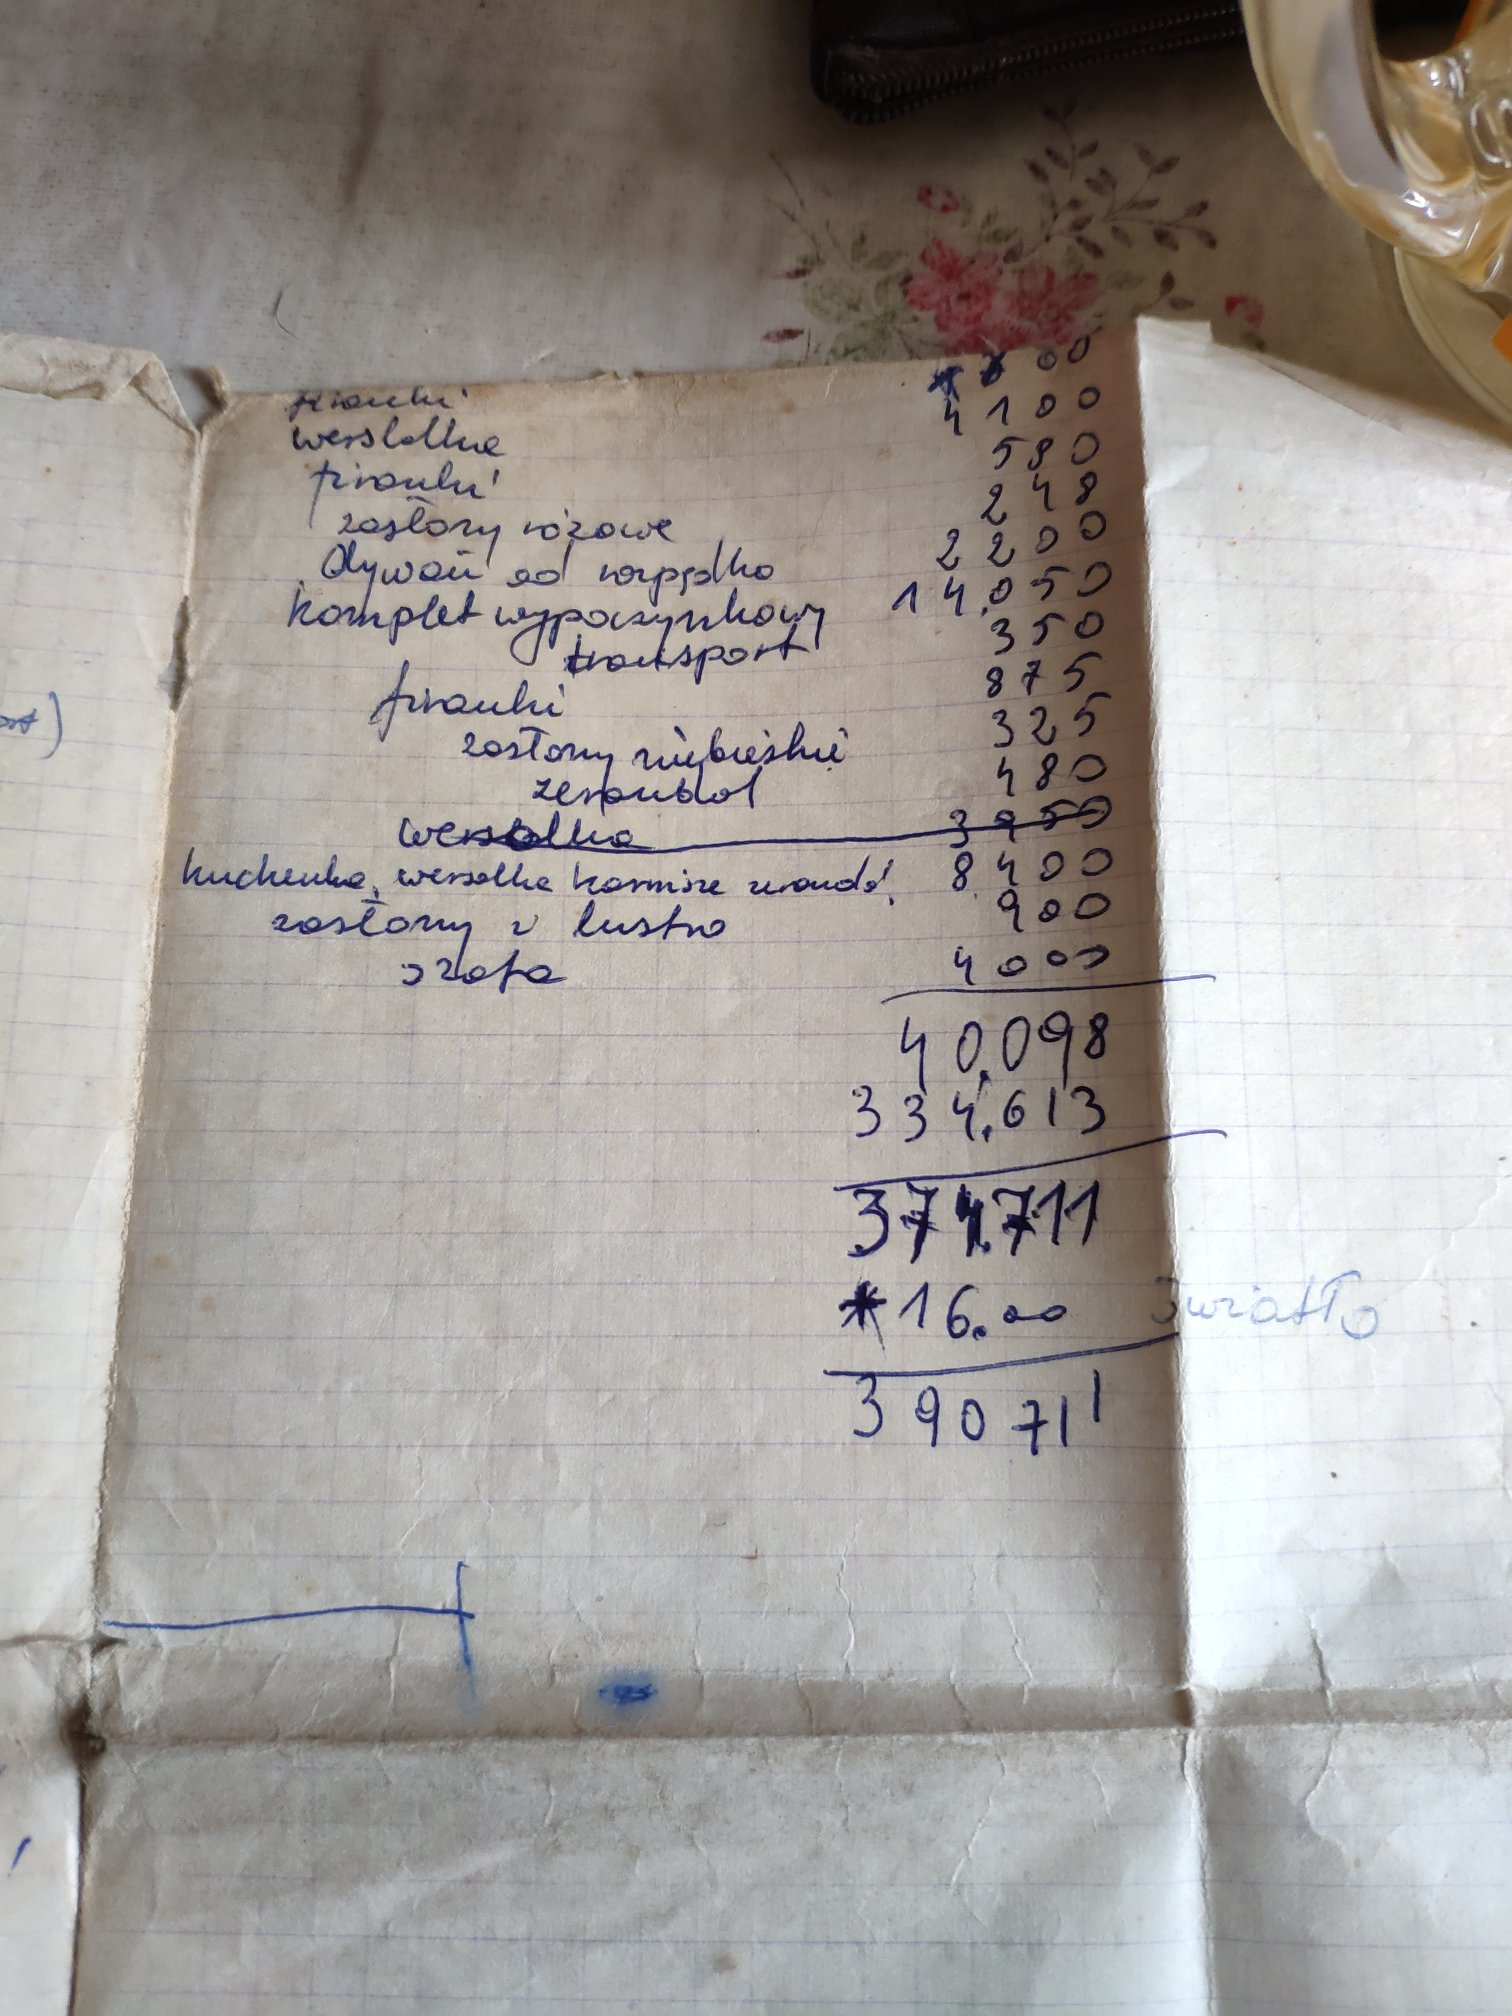 firanki 00
wersalka 4100
firanki 580
zasłony różowe 248
Dywan od 2200
Komplet wypoczynkowy 14.050
transport 350
firanki 875
zasłony niebieskie 325
żerandol 480
wersalka 3950
kuchenka, wersalka karnisze 8400
zasłony i lustro 900
szafa 4000
40.098
334.613
374.711
16.00 światło
390711